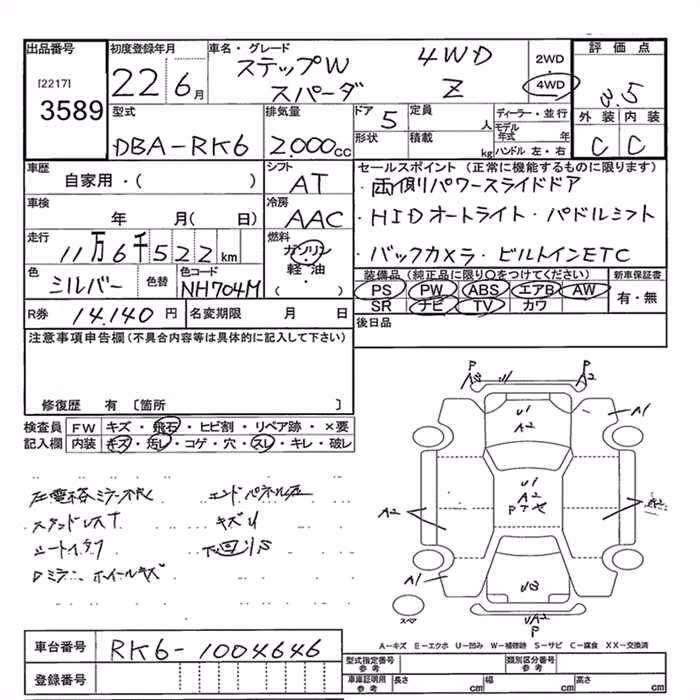 出品番号 初度登録年月 車名・グレード 評価点
[2217] 3589
22 6月
ステップW 4WD
スパーダ Z
2WD ・ 4WD
3.5
外装 内装
C C
型式 排気量 ドア 定員 ディーラー・並行
DBA-RK6 2.000cc 5 人 モデル年式 年
形状 積載 kg ハンドル 左・右
車歴 シフト セールスポイント (正常に機能するものに限ります)
自家用・( ) AT ・両側パワースライドドア
車検 冷房 ・HIDオートライト・パドルシフト
年 月( 日) AAC
走行 燃料 ・バックカメラ・ビルトインETC
11万6千522km ガソリン・軽油・( )
装備品(純正品に限り○をつけてください) 新車保証書
色 色替 色コード PS PW ABS エアB AW 有・無
シルバー NH704M SR ナビ TV カワ
R券 14.140円 名変期限 月 日 後日品
注意事項申告欄(不具合内容等は具体的に記入して下さい)
修復歴 有 〔箇所 〕
検査員 FW キズ・飛石・ヒビ割・リペア跡・×要
記入欄 内装 キズ・汚レ・コゲ・穴・スレ・キレ・破レ
エンドパネル
キズU
下回りS
ホイールキズ
P P
A2
U1 A1
A2
U1
A2
A2
A1
U3
スペア
UA2
P
A-キズ E-エクボ U-凹み W-補修跡 S-サビ C-腐食 XX-交換済
車台番号 RK6-1004646
型式指定番号 参考 類別区分番号 参考
登録番号 車庫証明用 参考 長さ cm 幅 cm 高さ cm